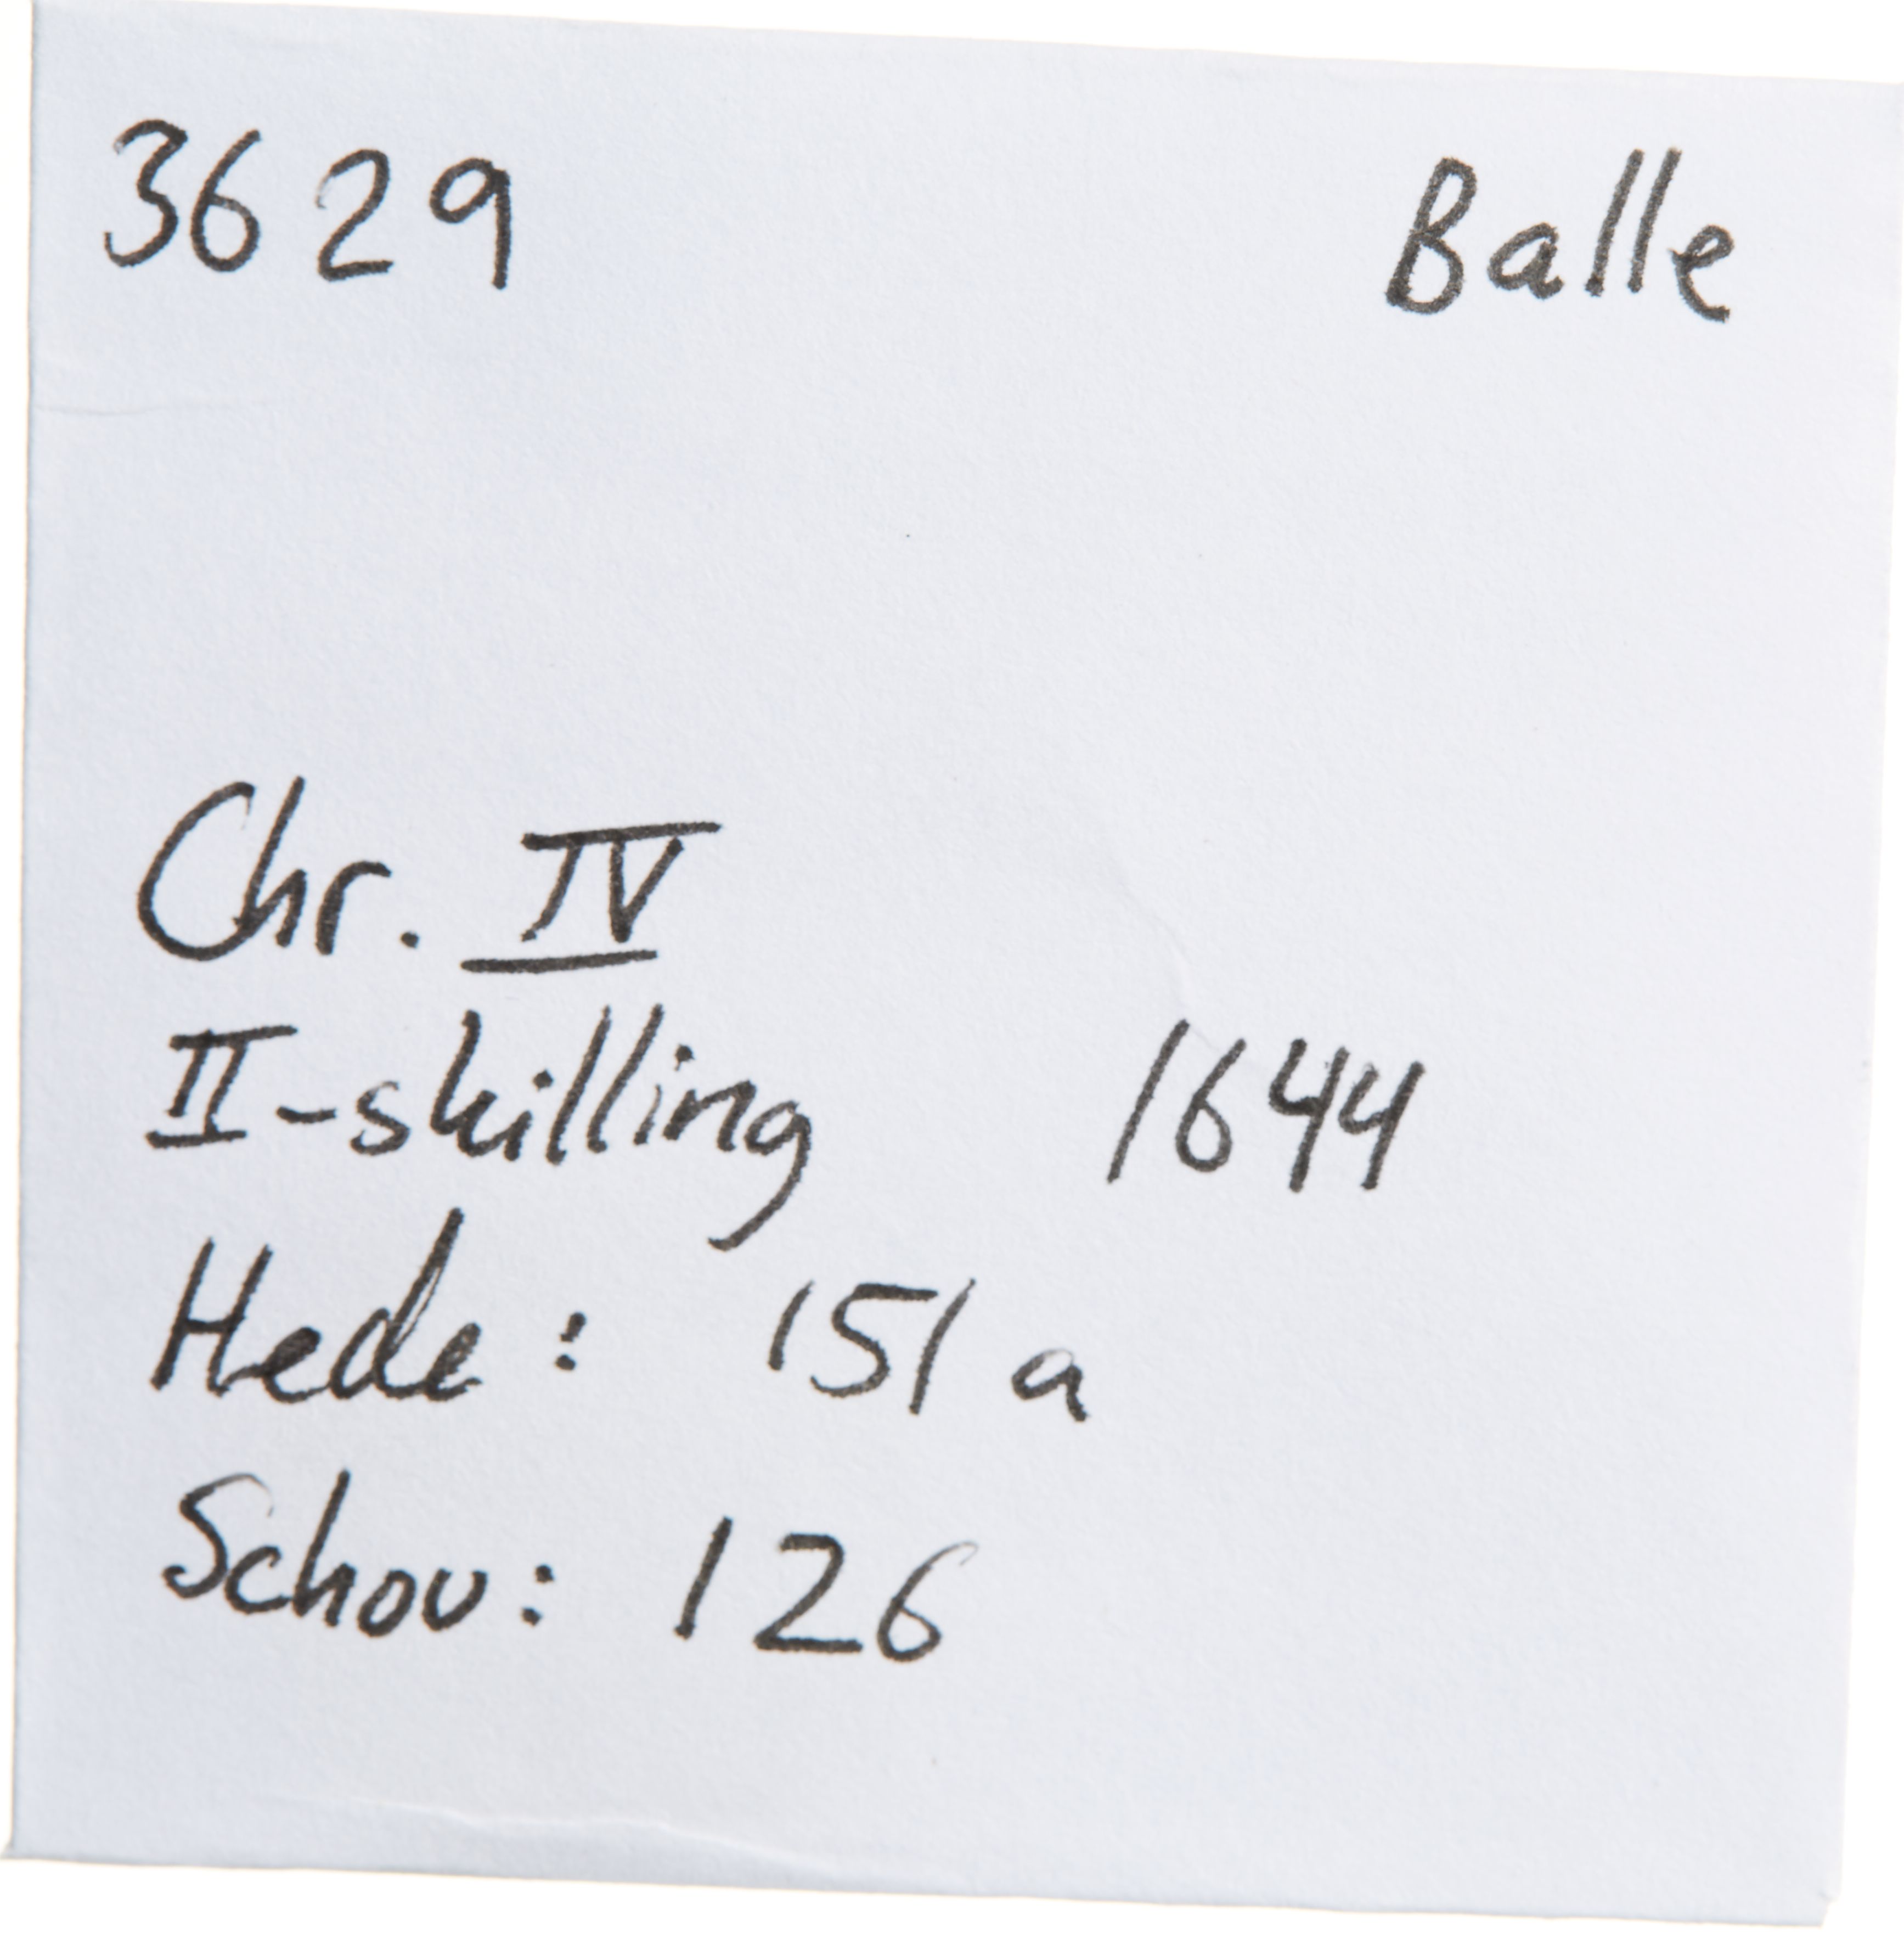 3629 Balle
Chr. IV
II-skilling 1644
Hede: 151 a
Schou: 126